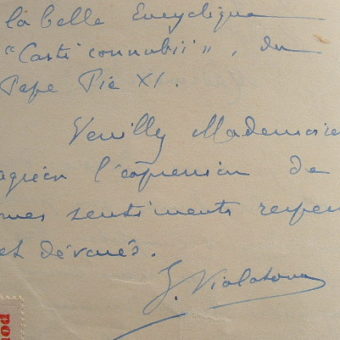 la belle Encyclique
"Casti connubii", du
Pape Pie XI.
Veuillez Mademoise
agréer l'expression de
mes sentiments respec
et dévoués.
J. Violatoux